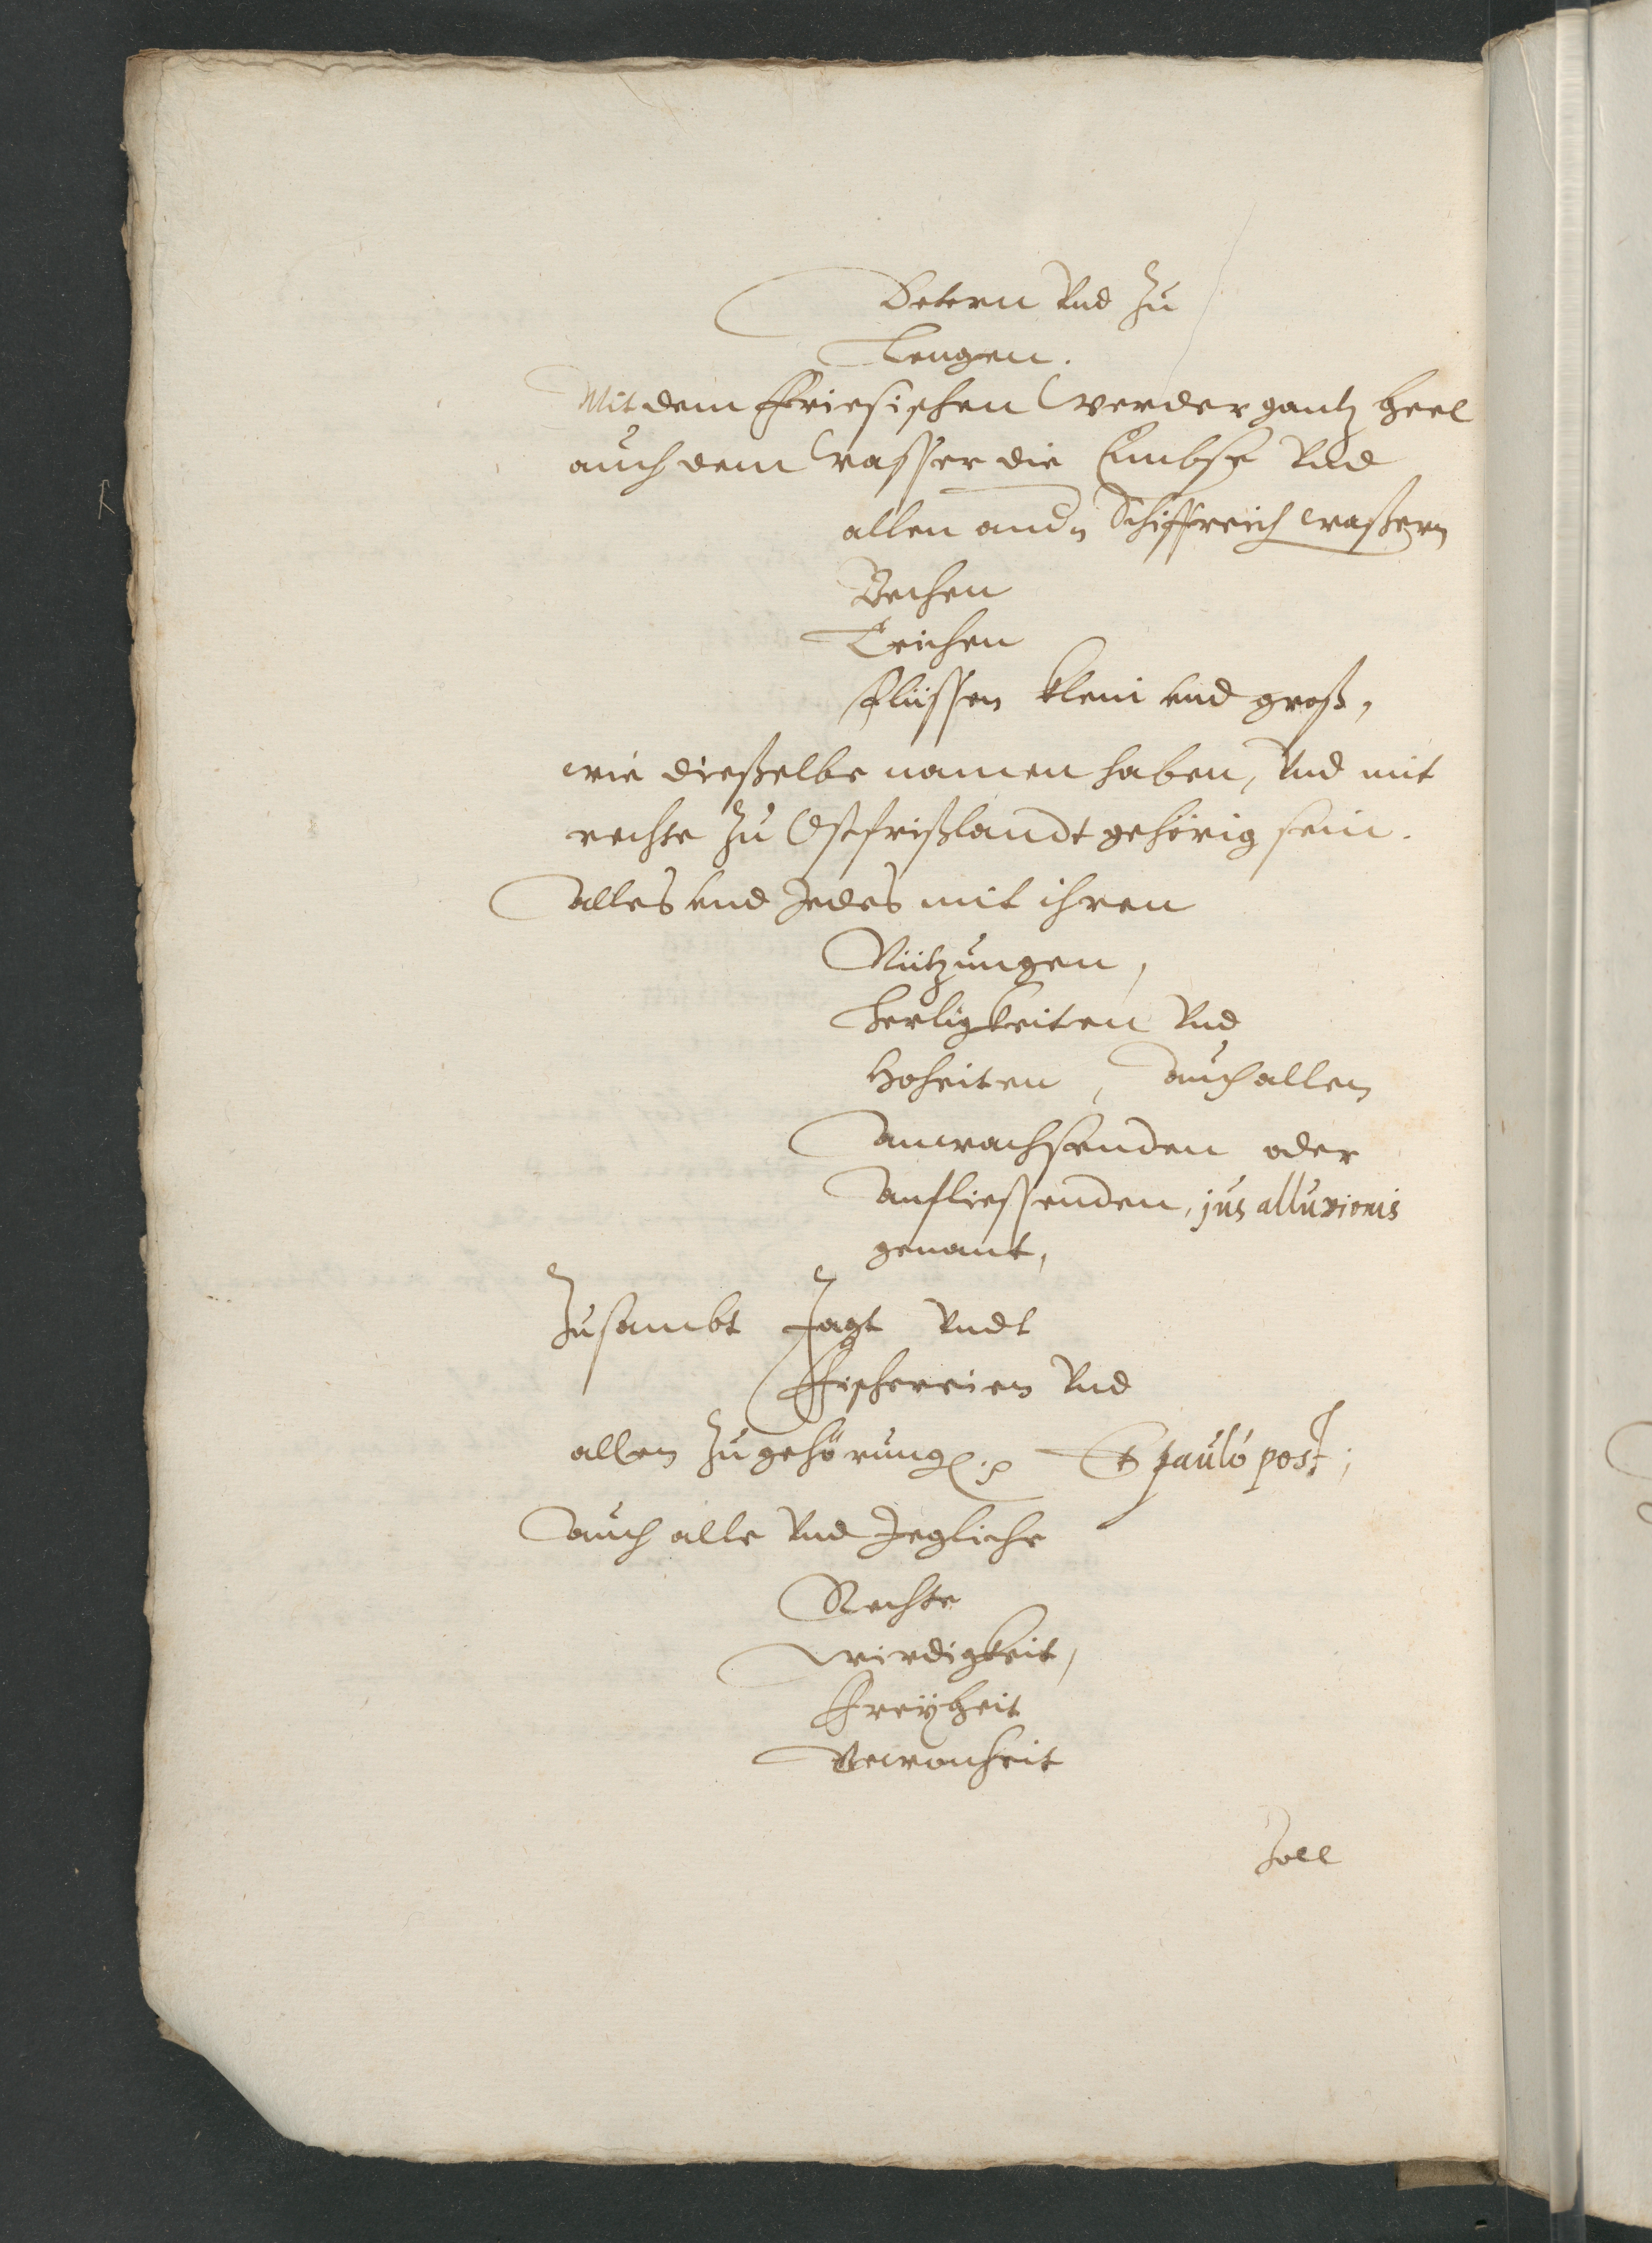 Detern Vnd Zu
Lengen.
Mit dem Friesischen Werder gantz heel
auch dem Wasser die Embse Vnd
allen andn Schiffreich waßern
Bechen
Teichen
flüssen klein vnd groß,
wie dieselbe namen haben, Vnd mit
rechte Zu Ostfrißlandt gehörig sein.
Alles vnd Jedes mit ihren
Nützungen,
herligkeiten Vnd
Hoheiten, Auch allen
Anwachsenden oder
Anfliessenden, jus alluvionis
genant,
Zusambt Jagt Vndt
Fischereien Vnd
allen Zugehörung. Et paulò post;
Auch alle Vnd Jegliche
Rechte
Wirdigkeit,
Freÿheit
Gewonheit
Zoll